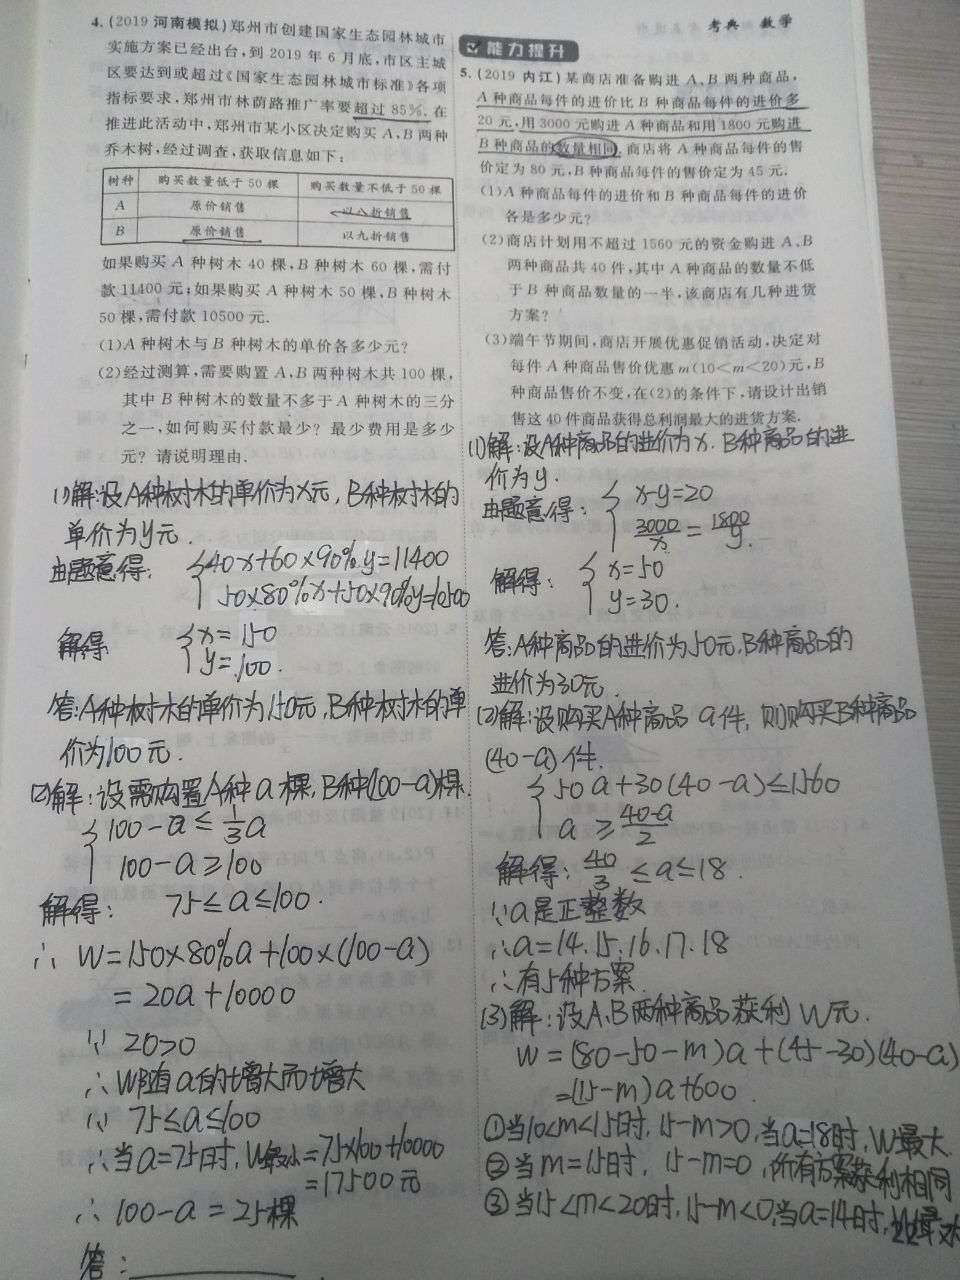 考典 数学
4.(2019 河南模拟)郑州市创建国家生态园林城市
实施方案已经出台,到 2019 年 6 月底,市区主城
区要达到或超过《国家生态园林城市标准》各项
指标要求,郑州市林荫路推广率要超过 85%.在
推进此活动中,郑州市某小区决定购买 A,B 两种
乔木树,经过调查,获取信息如下:
树种 购买数量低于 50 棵 购买数量不低于 50 棵
A 原价销售 以八折销售
B 原价销售 以九折销售
如果购买 A 种树木 40 棵,B 种树木 60 棵,需付
款 11400 元;如果购买 A 种树木 50 棵,B 种树木
50 棵,需付款 10500 元.
(1)A 种树木与 B 种树木的单价各多少元?
(2)经过测算,需要购置 A,B 两种树木共 100 棵,
其中 B 种树木的数量不多于 A 种树木的三分
之一,如何购买付款最少? 最少费用是多少
元? 请说明理由.
(1)解:设A种树木的单价为x元,B种树木的
单价为y元.
由题意得: {40x+60×90%y=11400
50×80%x+50×90%y=10500
解得 {x=150
y=100.
答:A种树木的单价为150元,B种树木的单
价为100元.
(2)解:设需购置A种a棵,B种(100-a)棵.
{100-a≤1/3a
100-a≥100
解得: 75≤a≤100.
∴ W=150×80%a+100×(100-a)
=20a+10000
∵ 20>0
∴W随a的增大而增大
∵ 75≤a≤100
∴当a=75时,W最小=75×100+10000
=17500元
∴ 100-a=25棵
答:
能力提升
5.(2019 内江)某商店准备购进 A,B 两种商品,
A 种商品每件的进价比 B 种商品每件的进价多
20 元,用 3000 元购进 A 种商品和用 1800 元购进
B 种商品的数量相同.商店将 A 种商品每件的售
价定为 80 元,B 种商品每件的售价定为 45 元.
(1)A 种商品每件的进价和 B 种商品每件的进价
各是多少元?
(2)商店计划用不超过 1560 元的资金购进 A,B
两种商品共 40 件,其中 A 种商品的数量不低
于 B 种商品数量的一半,该商店有几种进货
方案?
(3)端午节期间,商店开展优惠促销活动,决定对
每件 A 种商品售价优惠 m(10<m<20)元,B
种商品售价不变,在(2)的条件下,请设计出销
售这 40 件商品获得总利润最大的进货方案.
(1)解:设A种商品的进价为x.B种商品的进
价为y.
由题意得: {x-y=20
3000/x=1800/y.
解得: {x=50
y=30.
答:A种商品的进价为50元,B种商品的
进价为30元.
(2)解:设购买A种商品a件,则购买B种商品
(40-a)件.
{50a+30(40-a)≤1560
a≥40-a/2
解得:40/3≤a≤18.
∵a是正整数
∴a=14.15.16.17.18
∴有5种方案.
(3)解:设A、B两种商品获利W元.
W=(80-50-m)a+(45-30)(40-a)
=(15-m)a+600.
①当10<m<15时,15-m>0,当a=18时,W最大.
②当m=15时, 15-m=0,所有方案获利相同
③当15<m<20时,15-m<0,当a=14时,W最大